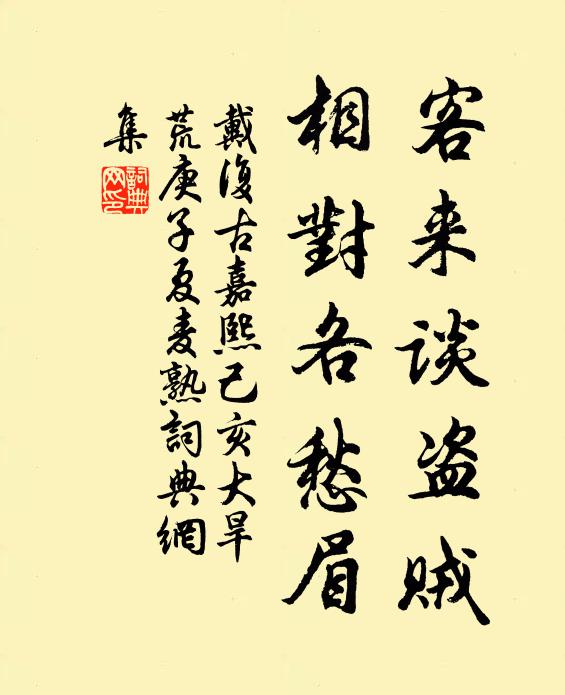 客来谈盗贼
相對各愁眉
戴復古嘉熙己亥大旱
荒庚子夏麦熟詞典網
集
詞典
网印